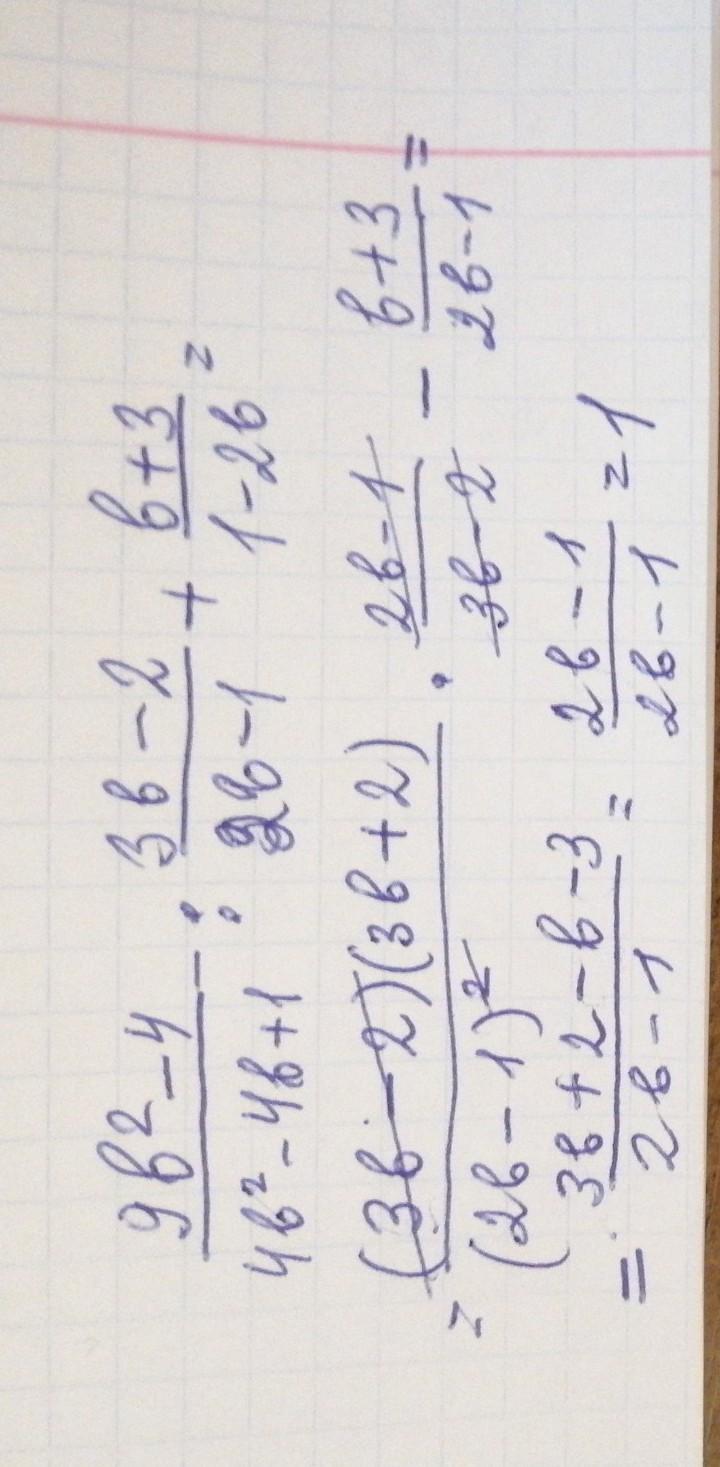 (9b² - 4)/(4b² - 4b + 1) : (3b - 2)/(2b - 1) + (b + 3)/(1 - 2b) =
= ((3b - 2)(3b + 2))/(2b - 1)² · (2b - 1)/(3b - 2) - (b + 3)/(2b - 1) =
= (3b + 2 - b - 3)/(2b - 1) = (2b - 1)/(2b - 1) = 1